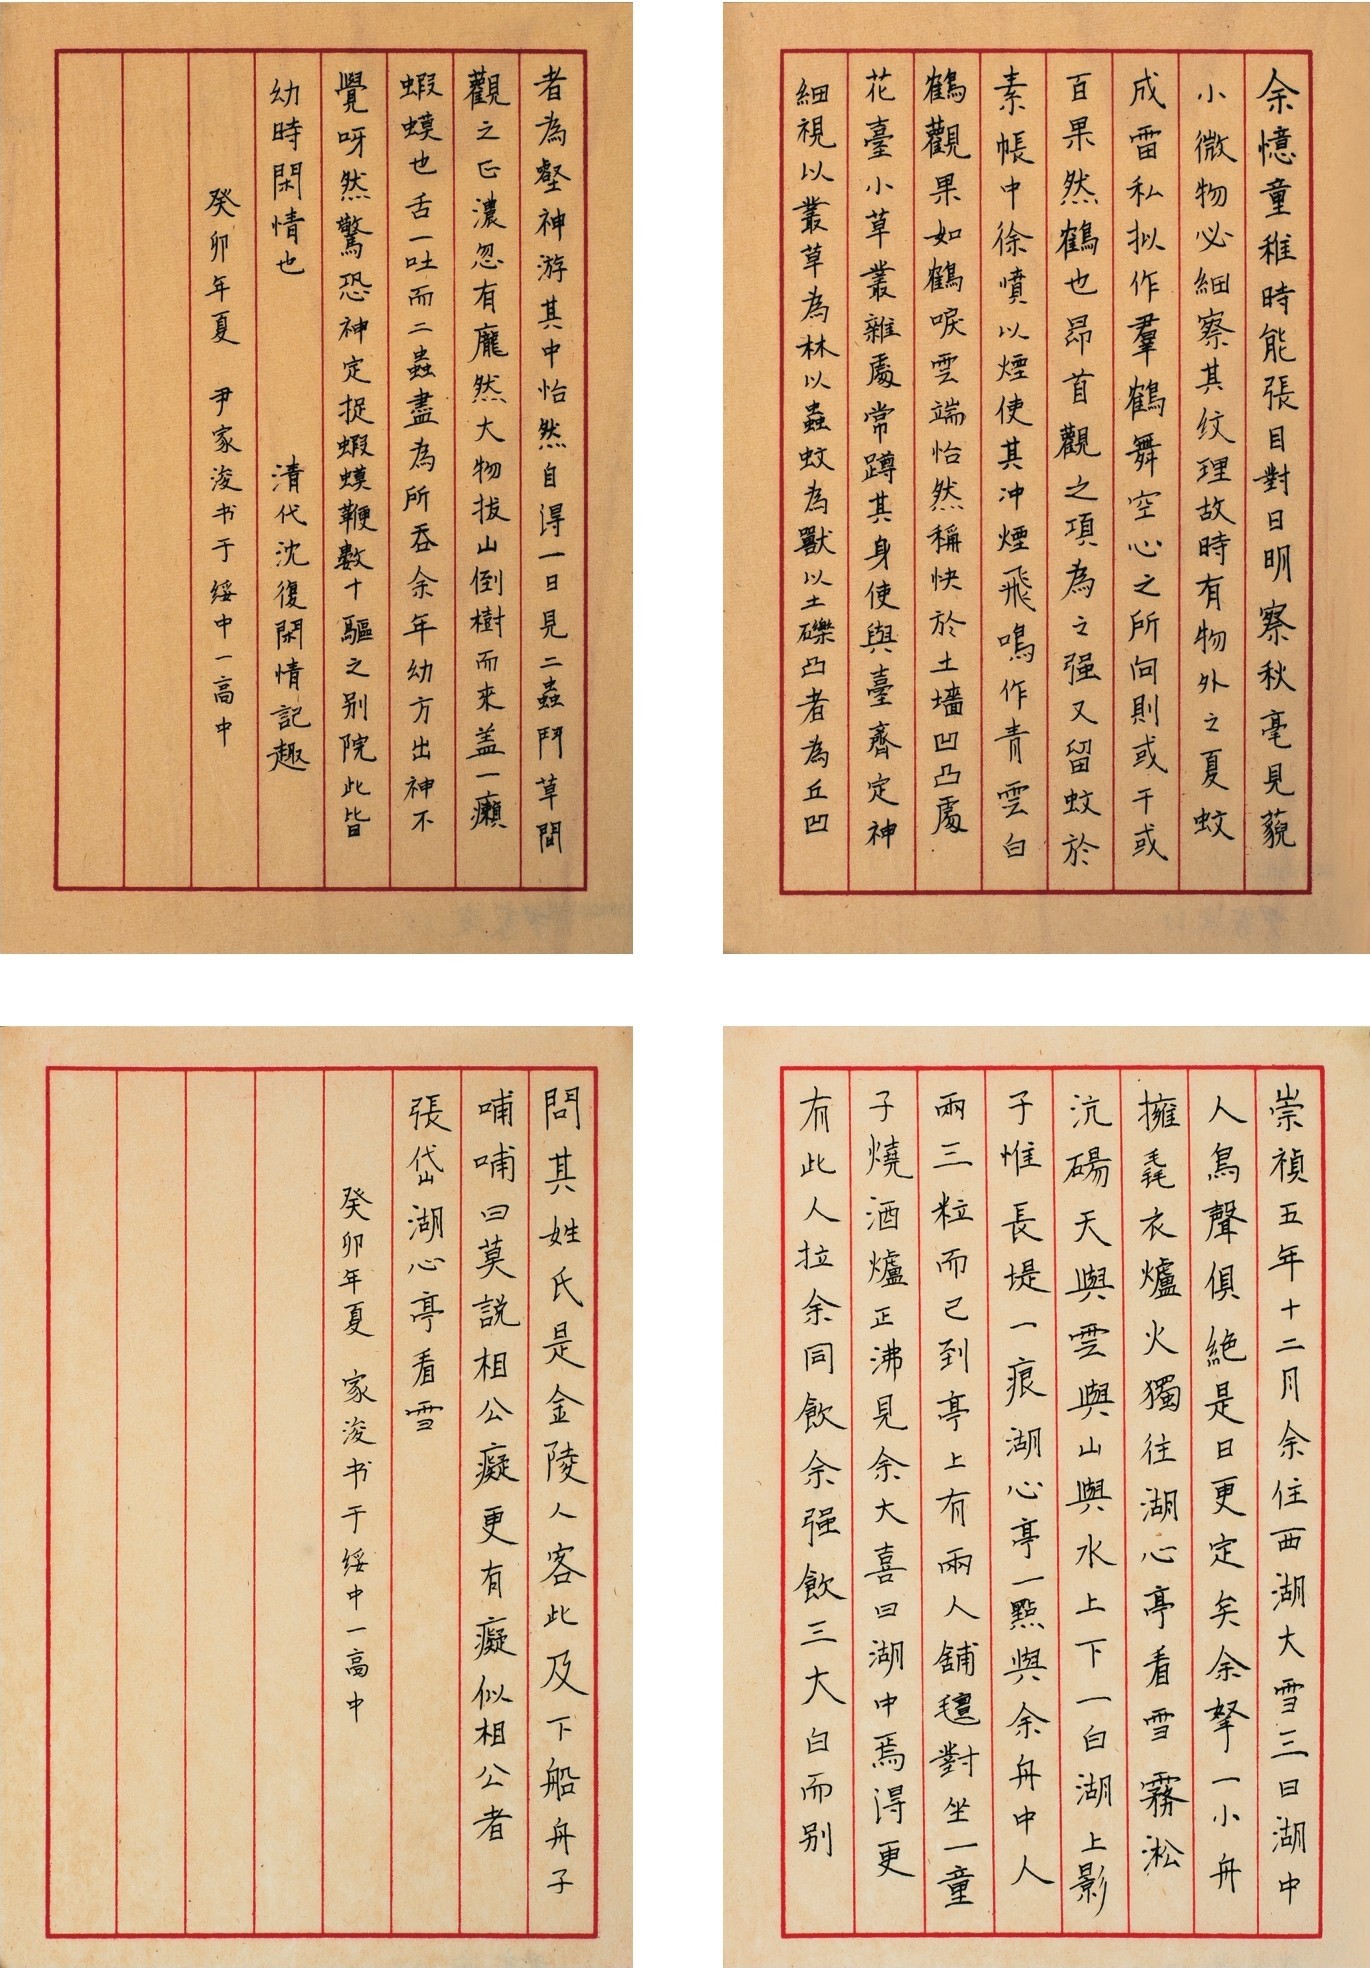 余憶童稚時能張目對日明察秋毫見藐
小微物必細察其紋理故時有物外之夏蚊
成雷私拟作羣鶴舞空心之所向則或千或
百果然鶴也昂首觀之項為之强又留蚊於
素帳中徐噴以煙使其冲煙飛鳴作青雲白
鶴觀果如鶴唳雲端怡然稱快於土墻凹凸處
花臺小草叢雜處常蹲其身使與臺齊定神
細視以叢草為林以蟲蚊為獸以土礫凸者為丘凹
者為壑神游其中怡然自得一日見二蟲鬥草間
觀之正濃忽有龐然大物拔山倒樹而來盖一癩
蝦蟆也舌一吐而二蟲盡為所吞余年幼方出神不
覺呀然驚恐神定捉蝦蟆鞭數十驅之别院此皆
幼時閑情也 清代沈復閑情記趣
癸卯年夏 尹家浚书于綏中一高中
崇禎五年十二月余住西湖大雪三日湖中
人鳥聲俱絶是日更定矣余拏一小舟
擁毳衣爐火獨往湖心亭看雪霧淞
沆碭天與雲與山與水上下一白湖上影
子惟長堤一痕湖心亭一點與余舟中人
兩三粒而已到亭上有兩人鋪氊對坐一童
子燒酒爐正沸見余大喜曰湖中焉得更
有此人拉余同飲余强飲三大白而别
問其姓氏是金陵人客此及下船舟子
哺哺曰莫説相公癡更有癡似相公者
張岱湖心亭看雪
癸卯年夏 家浚书于綏中一高中